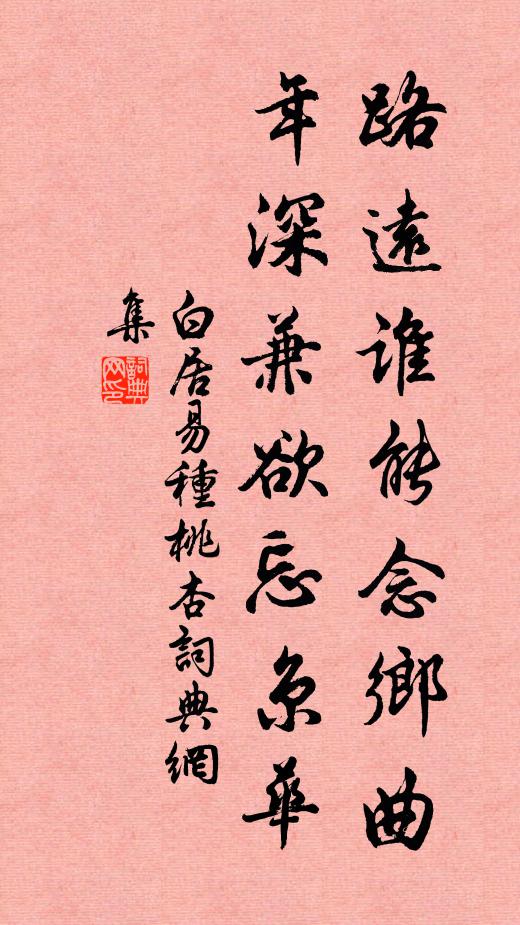 路遠誰能念鄉曲
年深兼欲忘京華
白居易種桃杏詞典網
集
詞典网印